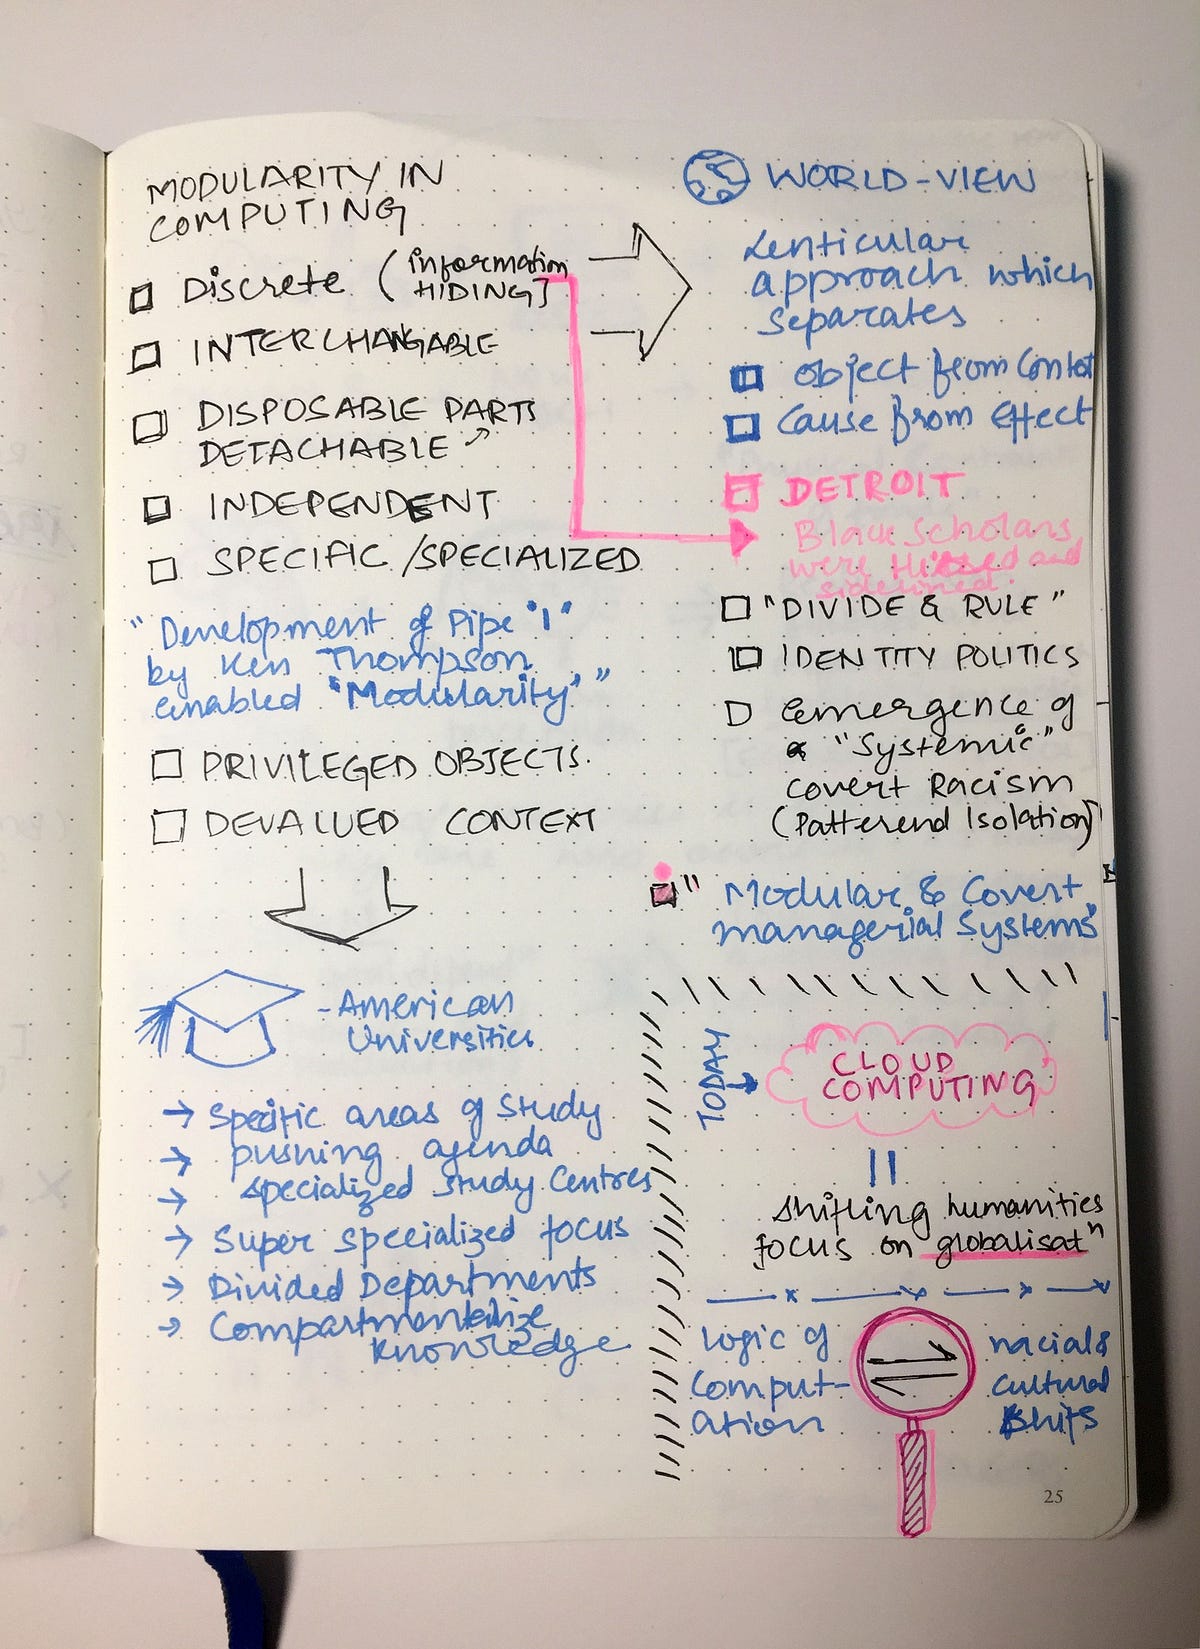 MODULARITY IN
COMPUTING
Discrete (information
HIDING)
INTERCHANGABLE
DISPOSABLE PARTS
DETACHABLE
INDEPENDENT
SPECIFIC / SPECIALIZED
"Development of Pipe '|'
by Ken Thompson
enabled 'Modularity'"
PRIVILEGED OBJECTS.
DEVALUED CONTEXT
- American
Universities
→ Specific areas of study
→ pushing agenda
→ specialized study Centres
→ Super specialized focus
→ Divided Departments
→ Compartmentalize
knowledge
WORLD-VIEW
Lenticular
approach which
separates
Object from Context
Cause from Effect
DETROIT
Black Scholars
were and
sidelined.
"DIVIDE & RULE"
IDENTITY POLITICS
Emergence of
a "Systemic"
covert Racism
(Patterend Isolation)
"Modular & Covert
managerial Systems"
TODAY
CLOUD
COMPUTING
||
shifting humanities
focus on globalisatⁿ
logic of
Comput-
ation
racial &
cultural
shifts
25